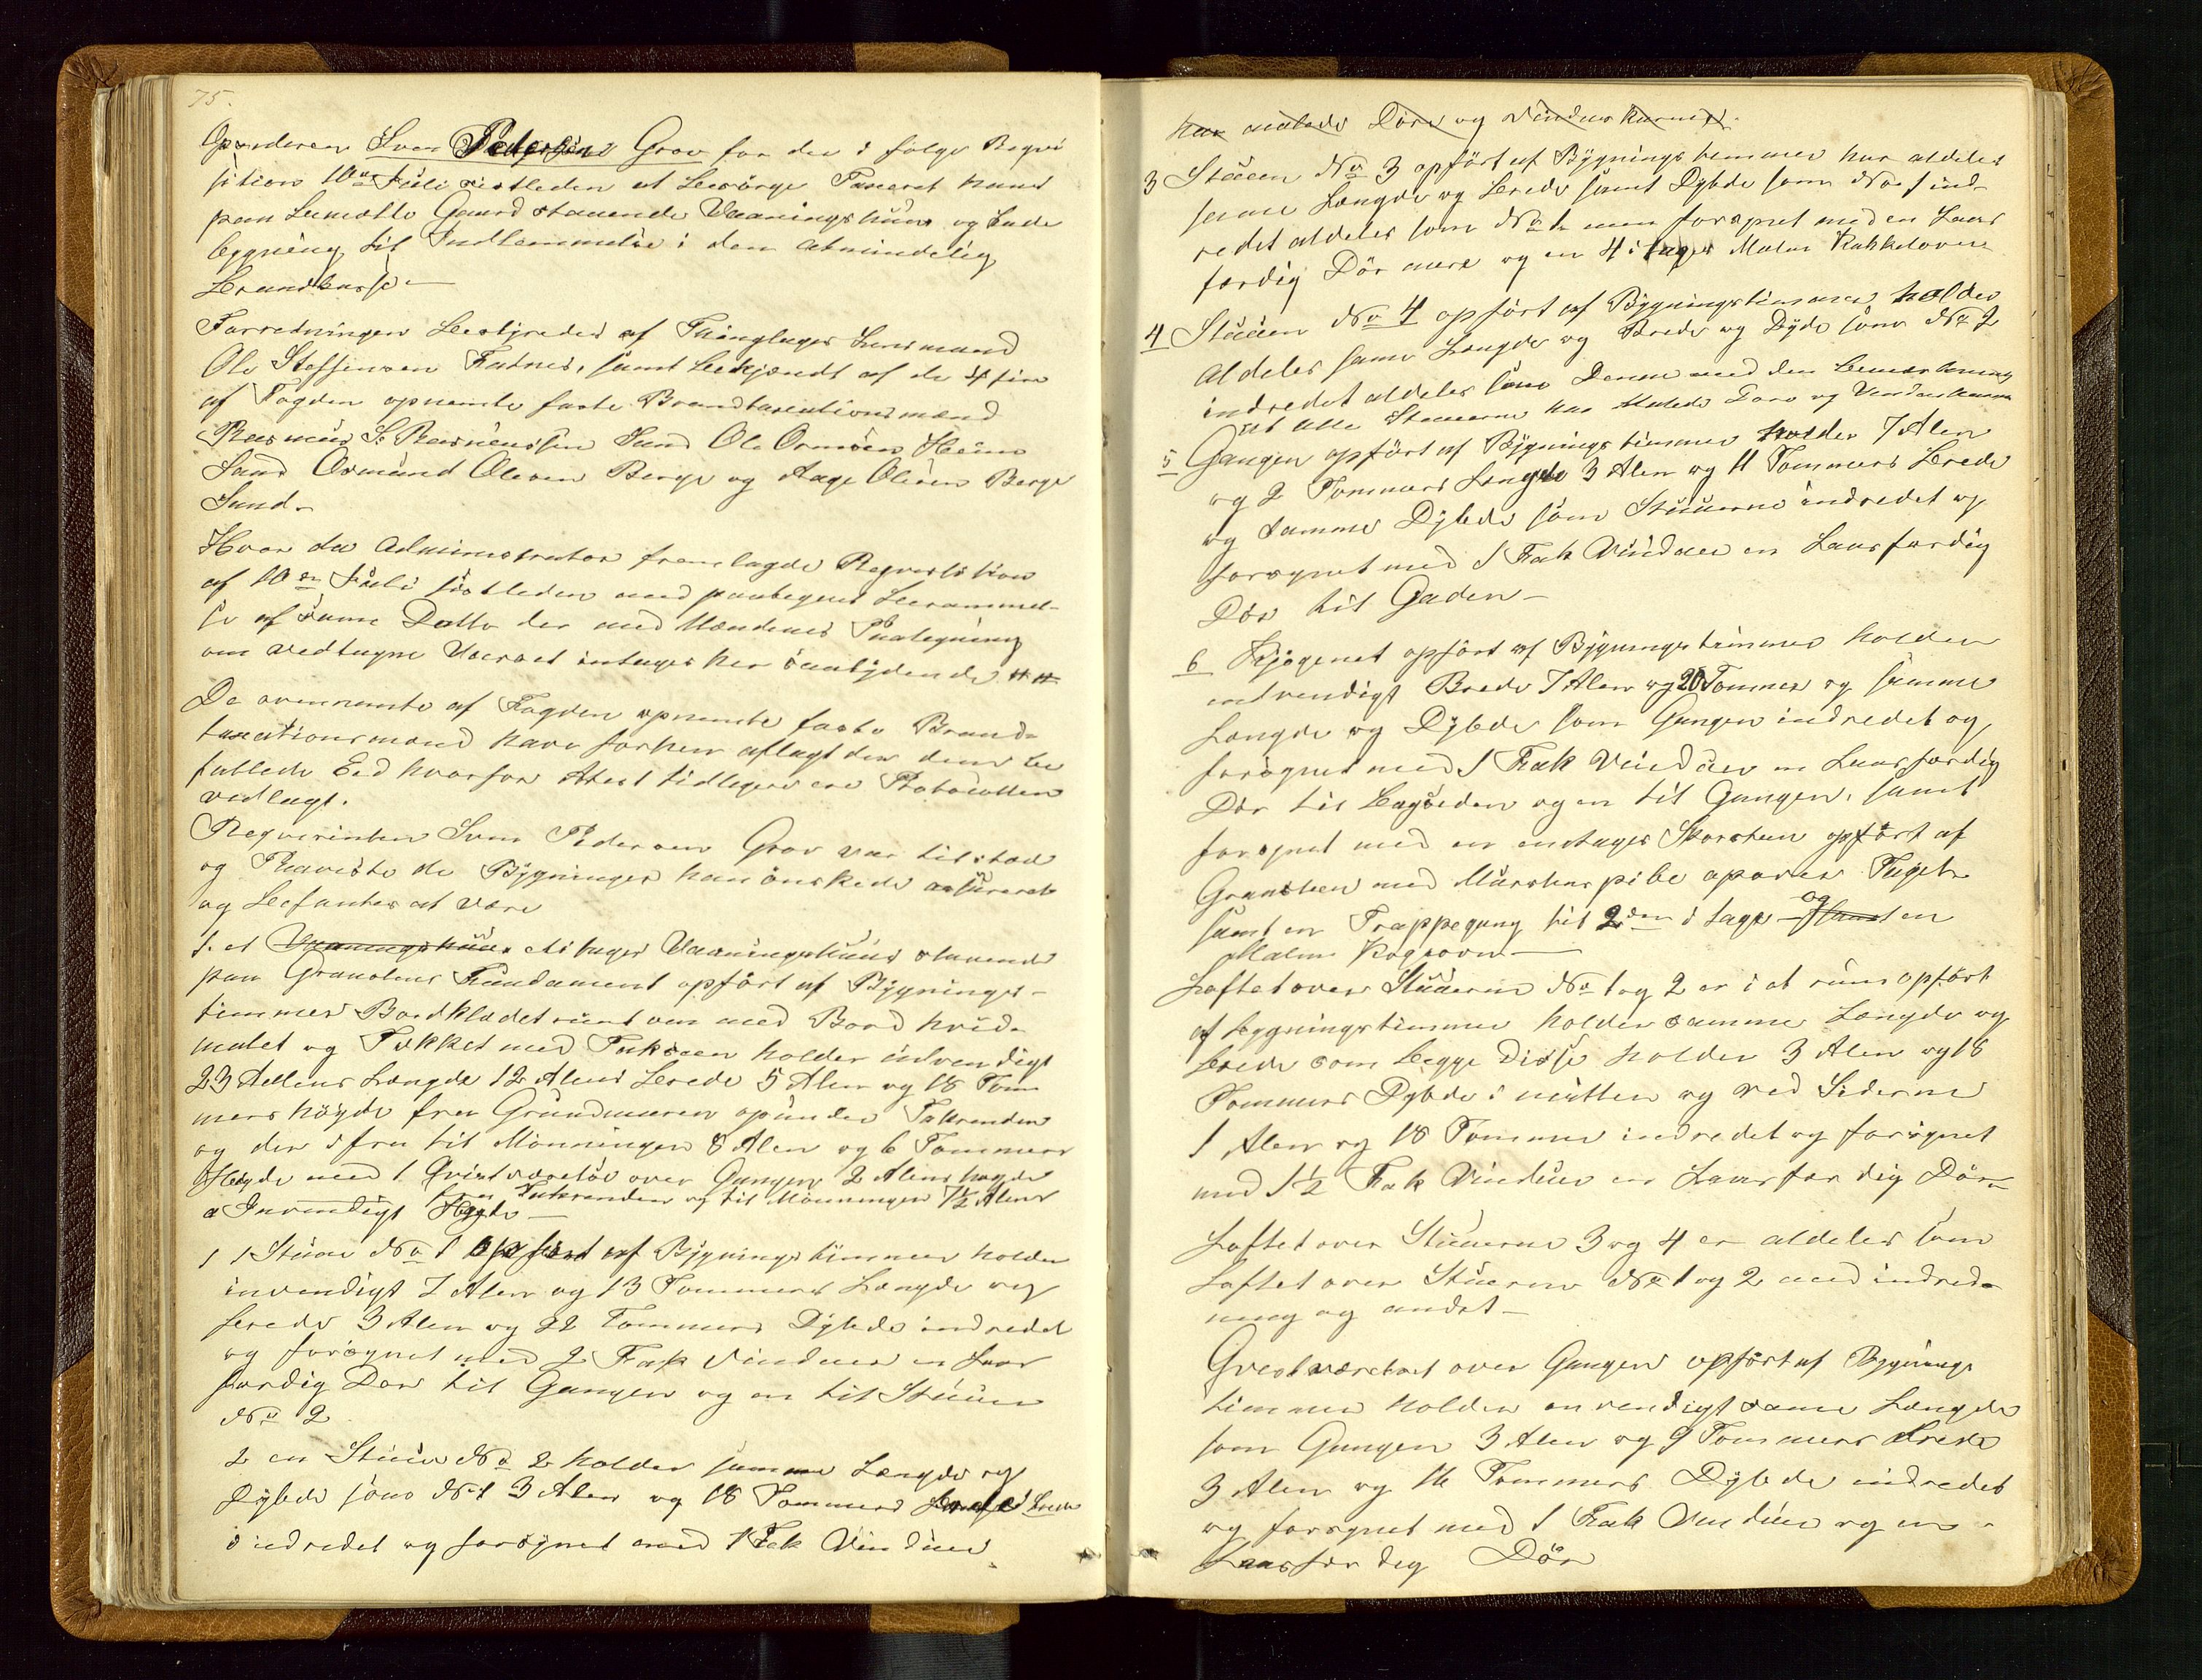 75.
Gaarderen Sven Pedersens Grov for der i følge Reqvi
sition 10de Juli sistleden at besörge Taxeret hans
paa Gaard staaende Vaaningshuus og Lade
bygning til Indlemmelse i den almindelig
Brandkasse.—
Forredningen bestyredes af Thinglagets Lensmand
Ole Steffensen Fatnes, samt bekjendt af de 4 fire
af Fogden opnemte faste Brandtaxationsmænd
Rasmus S. Rasmussen Sand Ole Ormsen Heim
Sand Osmund Olesen Berge og Aage Olesen Berge
Sand.
Hvor da Administrator fremlagde Reqvisition
af 10de Juli sistleden med paategnet Berammel-
se af samme Datto der med Mændenes Paategning
om vedtagne Varsel intages her saalydende # #
De ovennemte af Fogden opnemte faste Brand-
taxationsmænd have forhen aflagt den dem be
fallede Eed hvorfor Atest tidligere ere Protocollen
vedlagt.
Reqvirenten Sven Pedersen Grov var tilstæd
og Paaviste de Bygninger han önskede asureret
og befantes at være
1. et Vaaningshuus etetages Vaaningshuus staaende
paa Graastens Fundament opfört af Bygnings-
timmer Bordklædet runt om med Bord hvid-
malet og Tækket med Taksten holder udvendigt
23 Allens Længde 12 Alens Brede 5 Alen og 18 Tom
mers höyde fra Grundmuren opunder Takrenden
og der ifra til Mönningen 8 Alen og 6 Tommers
Höyde med 1 Qvistværelse over Gangen 2 Alens höyde
fra Takrenden og til Mönningen 7½ Alens
a Invendigt Höyde —
1 1 Stue No 1 opfört af Bygningstimmer holder
invendigt 7 Alen og 13 Tommers Længde og
brede 3 Alen og 22 Tommers Dybde indredet
og forsynet med 2 Fak Vinduer en Laas
færdig Dör til Gangen og en til Stuen
No 2
2 en Stue No 2 holder samme Længde og
Dybde som No 1 3 Alen og 18 Tommers Brede
indredet og forsynet med 1 Fak Vinduer
har malede Döre og Vindueskarme.
3 Stuen No 3 opfört af Bygningstimmer har aldeles
samme Længde og brede samt Dybde som No 1 ind-
redet aldeles som No 1 men forsynet med en Laas
færdig Dör mere og en 4 etages Malm Kakkelovn
4 Stuen No 4 opfört af Bygningstimmer holder
Aldeles samme Længde og Brede og Dybde som No 2
indredet aldeles som Denne med den Bemærkning
at alle Stuerne har Malede Döre og Vindueskarme
5 Gangen opfört af Bygningstimmer holder 7 Alen
og 2 Tommers Længde 3 Alen og 11 Tommers Brede
og samme Dybde som Stuerne indredet og
forsynet med 1 Fak Vinduer en Laasfærdig
Dör til Gaden —
6 Kjögenet opfört af Bygningstimmer holder
indvendigt Brede 7 Alen og 20 Tommer og samme
Længde og Dybde som Gangen indredet og
forsynet med 1 Fak Vinduer en Laasfærdig
Dör til Bagsiden og en til Gangen, samt
forsynet med en enetages Skorsten opfört af
Graasten med Murstenspibe opover Taget
samt en Trappegang til 2den etage og en
Malm Kogeovn —
Loftet over Stuerne No 1 og 2 er i et rum opfört
af bygningstimmer holder samme Længde og
brede som begge Disse holder 3 Alen og 18
Tommers Dybde i mitten og ved Siderne
1 Alen og 18 Tommer indredet og forsynet
med 1½ Fak Vinduer en Laasfærdig Dör
Loftet over Stuerne 3 og 4 er aldeles som
Loftet over Stuerne No 1 og 2 med indred-
ning og andet —
Qvistværelset over Gangen opfört af Bygnings
timmer holder invendigt samme Længde
som Gangen 3 Alen og 9 Tommers Brede
3 Alen og 16 Tommers Dybde indredet
og forsynet med 1 Fak Vinduer og en
Laasfærdig Dör